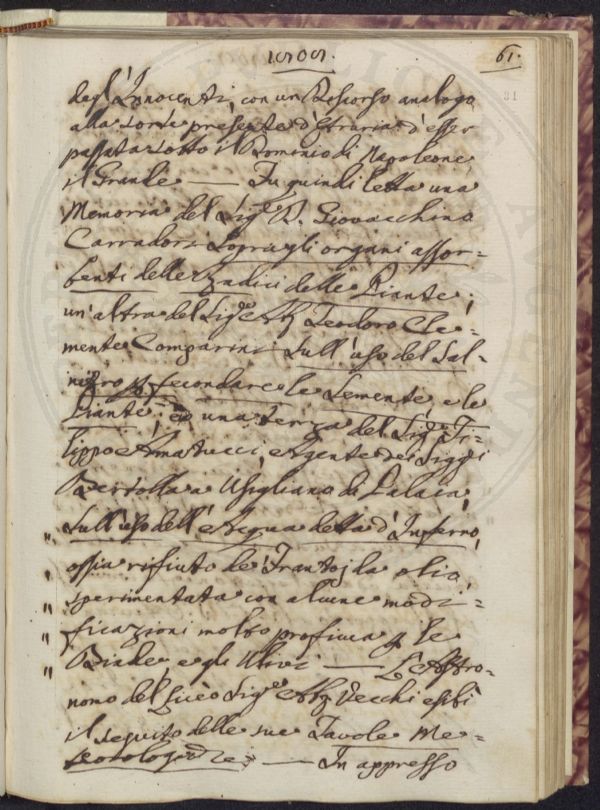 1808. 61.
81
degl'Innocenti, con un Discorso analogo
alla sorte presente d'Etruria d'esser
passata sotto il Dominio di Napoleone
il Grande — Fu quindi letta una
Memoria del Sig.e D. Giovacchino
Carradori Sopra gli organi assor=
benti delle Radici delle Piante;
un'altra del Sig.e Ab. Teodoro Cle=
mente Comparini Sull'uso del Sal=
nitro p fecondare le Semente e le
Piante; ed una terza del Sig.e Fi=
lippo Amatucci, Agente dei Sigg.i
Bertolla a Usigliano di Palaia,
Sull'uso dell'Acqua detta d'Inferno,
" ossia rifiuto de' Frantoj da olio,
" sperimentata con alcune modi=
" ficazioni molto proficua p le
" Biade, e gli Ulivi — L'Astro=
nomo del Liceo Sig.e Ab. Vecchi esibì
il seguito delle sue Tavole Me=
teorologiche — In appresso